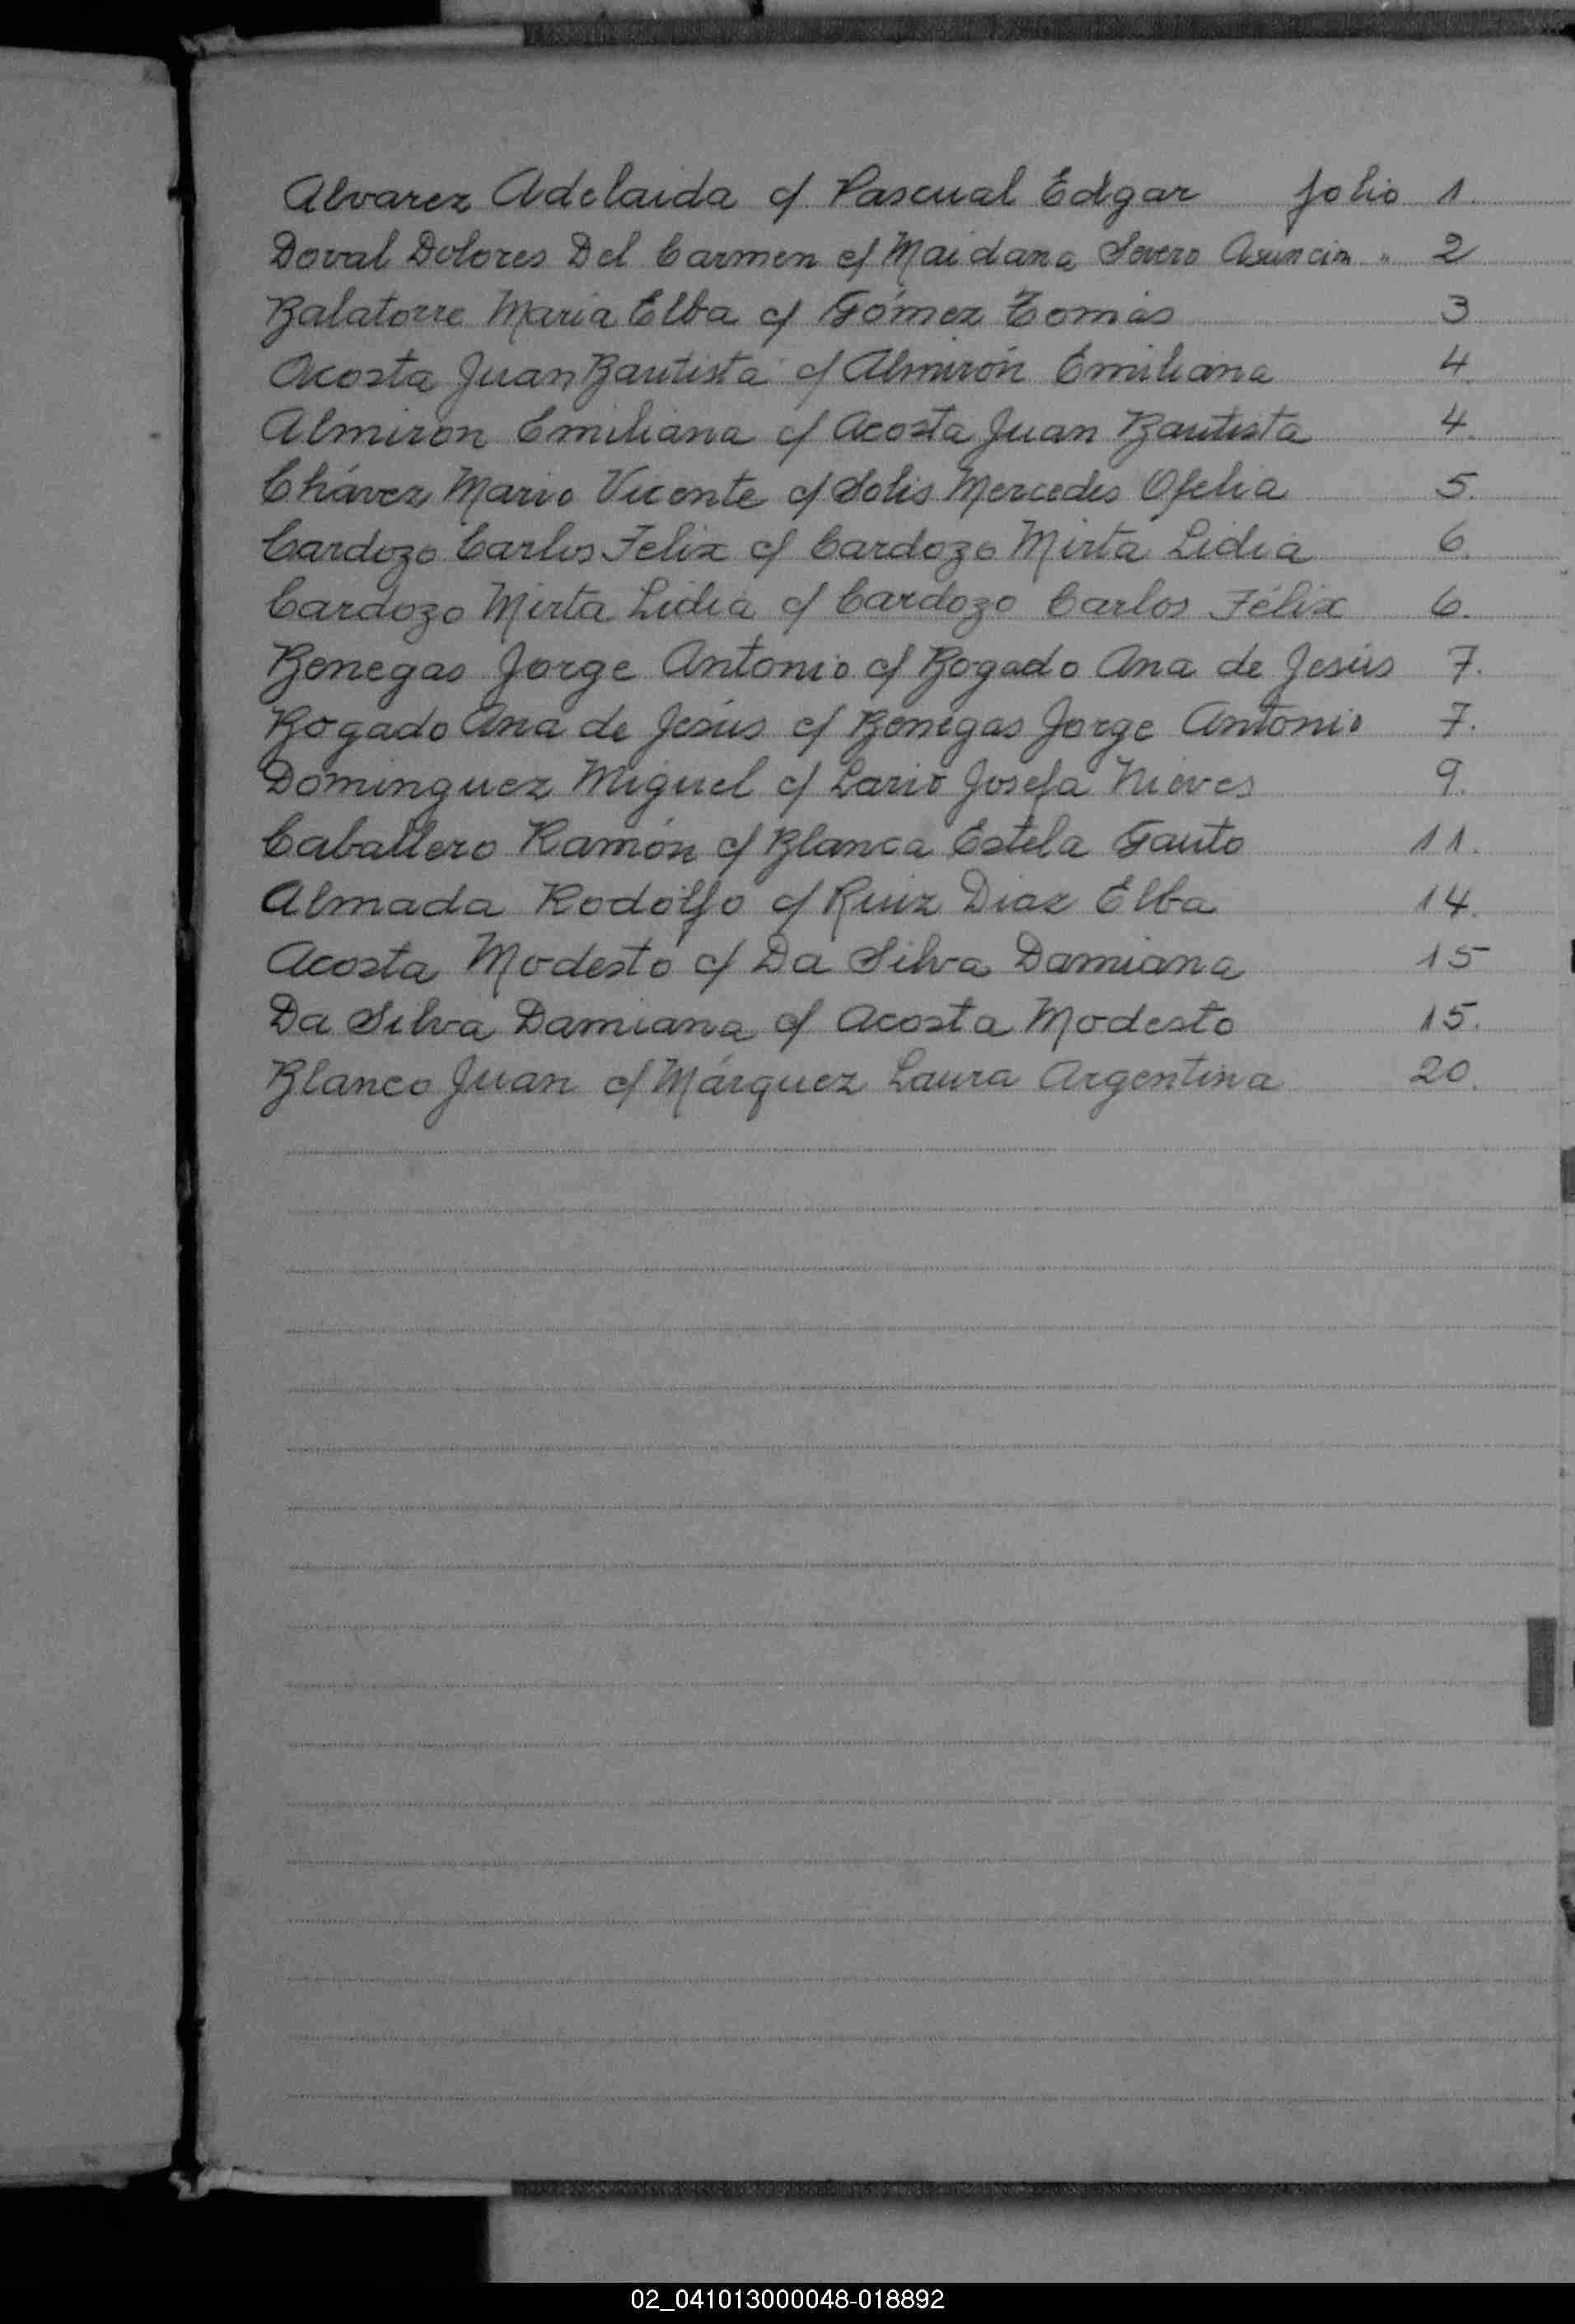 Alvarez Adelaida c/ Pascual Edgar folio 1.
Doval Dolores Del Carmen c/ Maidana Severo Asunción " 2
Balatorre Maria Elba c/ Gómez Tomás 3
Acosta Juan Bautista c/ Almirón Emiliana 4
Almiron Emiliana c/ Acosta Juan Bautista 4.
Chávez Mario Vicente c/ Solis Mercedes Ofelia 5.
Cardozo Carlos Felix c/ Cardozo Mirta Lidia 6.
Cardozo Mirta Lidia c/ Cardozo Carlos Félix 6.
Benegas Jorge Antonio c/ Bogado Ana de Jesús 7.
Bogado Ana de Jesús c/ Benegas Jorge Antonio 7.
Dominguez Miguel c/ Lario Josefa Nieves 9.
Caballero Ramón c/ Blanca Estela Gauto 11.
Almada Rodolfo c/ Ruiz Diaz Elba 14.
Acosta Modesto c/ Da Silva Damiana 15
Da Silva Damiana c/ Acosta Modesto 15.
Blanco Juan c/ Márquez Laura Argentina 20.
02_041013000048-018892